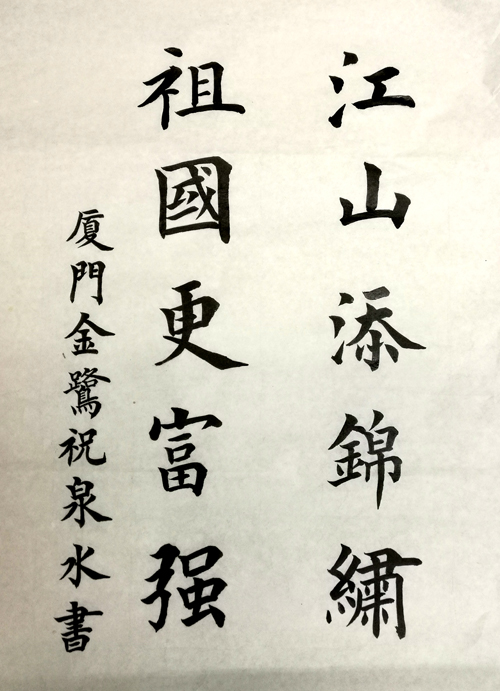 江山添錦繡
祖國更富强
厦門金鷺祝泉水書